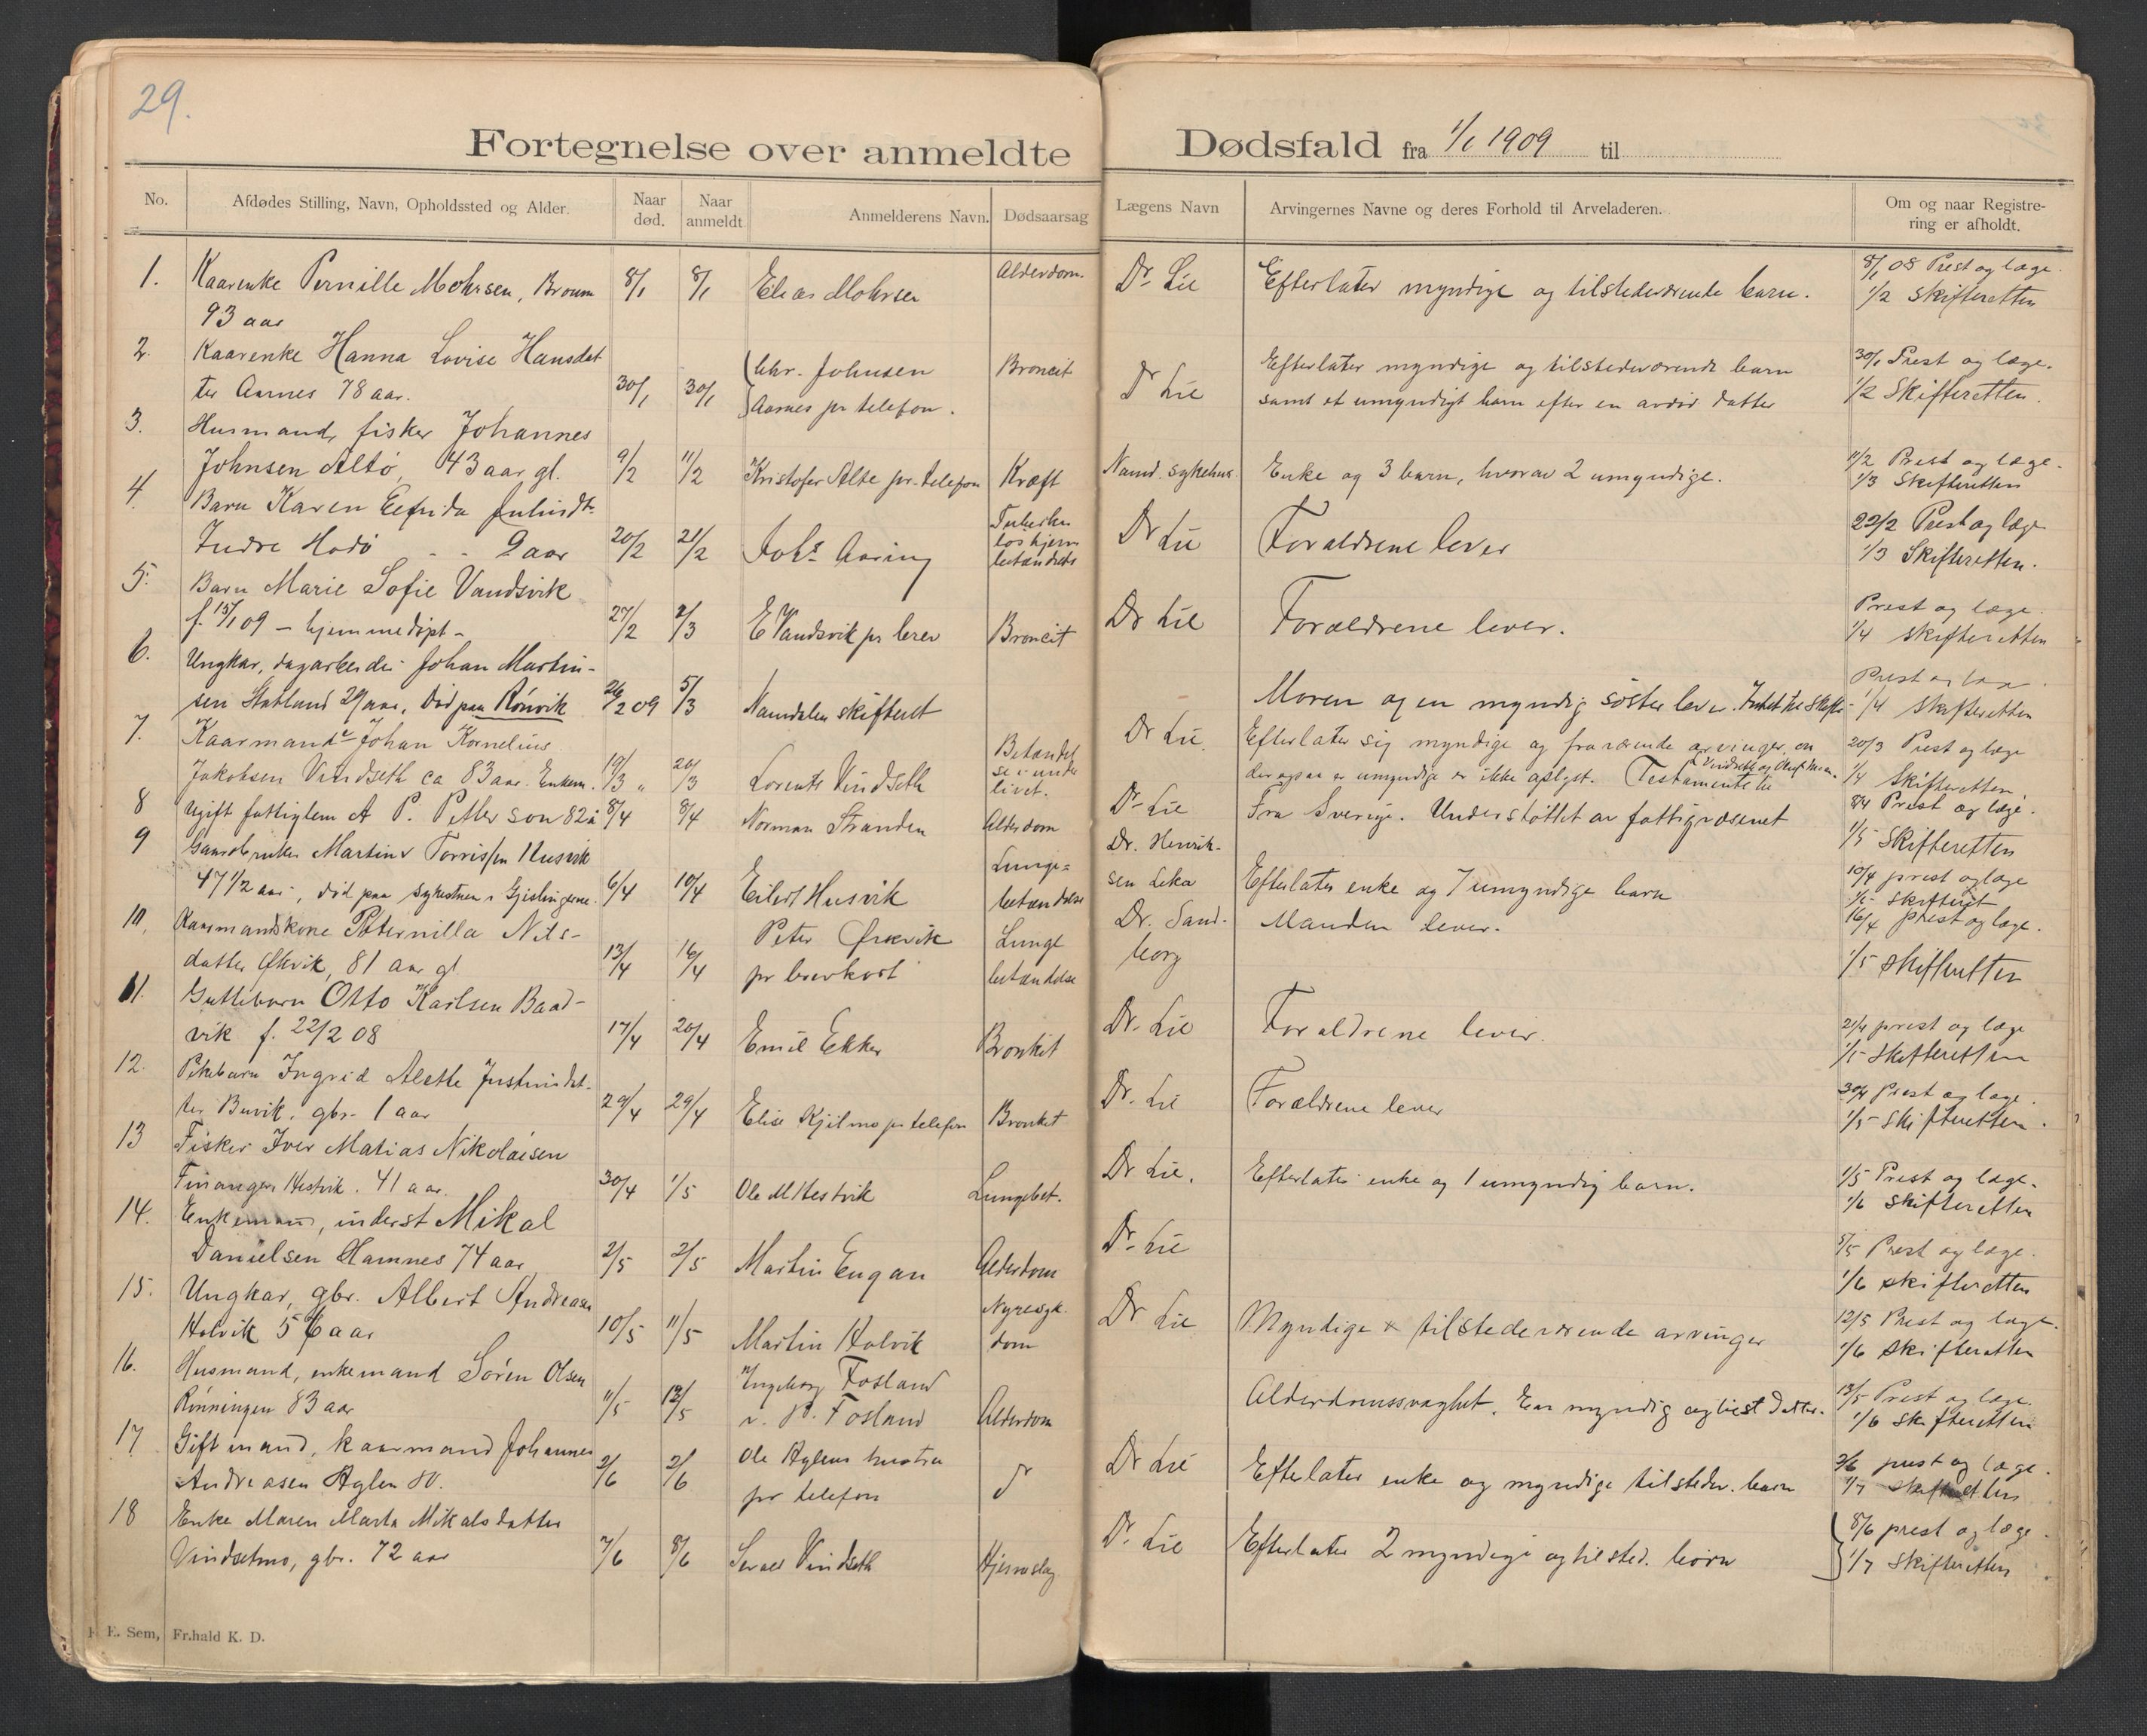 29.
Fortegnelse over anmeldte Dødsfald fra 1/1 1909 til
No.
Afdødes Stilling, Navn, Opholdssted og Alder.
Naar død.
Naar anmeldt
Anmelderens Navn.
Dødsaarsag
Lægens Navn
Arvingernes Navne og deres Forhold til Arveladeren.
Om og naar Registrering er afholdt.
1. Kaarenke Pernille Mohrsen, 8/1 8/1 Elias Mohrsen Alderdom. Dr Lie Efterlater myndige og tilstedeværende barn. 8/1 08 Prest og læge.
93 aar 1/2 Skifteretten
2. Kaarenke Hanna Lovise Hansdat Chr. Johnsen Broncit Efterlater myndige og tilstedeværende barn 30/1 Prest og læge.
ter Aarnes 78 aar. 30/1 30/1 Aarnes pr telefon. Dr Lie samt et umyndigt barn efter en avdød datter 1/2 Skifteretten.
3. Husmand, fisker Johannes
Johnsen Altø, 43 aar gl. 9/2 11/2 Kristofer Alte pr. telefon Kræft Namd. sykehus. Enke og 3 barn, hvorav 2 umyndige. 11/2 Prest og læge.
1/3 Skifteretten
4. Barn Karen Elfrida Tuberku
Indre Hodø 2 aar 20/2 21/2 Johs Aaring los hjerne Dr Lie Forældrene lever 22/2 Prest og læge
betændelse 1/3 Skifteretten.
5. Barn Marie Sofie Vandsvik Prest og læge.
f. 15/1 09 – hjemmedøpt – 27/2 2/3 E Vandsvik pr brev Broncit Dr Lie Forældrene lever. 1/4 skifteretten
6. Ungkar, dagarbeider Johan Martin- Prest og læge.
sen Statland 29 aar, død paa Rönvik 26/2 09 5/3 Namdalen skifteret Moren og en myndig söster lever. 1/4 Skifteretten
7. Kaarmand Johan Kornelius Betændel Dr Lie. Efterlater sig myndige og fraværende arvinger, om 20/3 Prest og læge
Jakobsen Vindseth ca 83 aar. Enkem. 19/3 20/3 Lorents Vindseth se i under der ogsaa er umyndige er ikke oplyst. Testamente til 1/4 Skifteretten
livet.
8 Ugift fattiglem A P. Petterson 82 å 8/4 8/4 Norman Stranden Alderdom Dr Lie Fra Sverige. Understøttet av fattigvæsenet 8/4 Prest og læge.
1/5 Skifteretten
9 Gaardbruker Martin Torrissen Husvik Lunge= Dr. Henrik-
47 1/2 aar, død paa sykestuen i Gjeslingerne. 6/4 10/4 Eilert Husvik betændelse sen Leka Efterlater enke og 7 umyndige barn 10/4 prest og læge
1/5 Skifteret
10. Kaarmandskone Peternilla Nils- Peter Lunge Dr. Sand- Manden lever. 16/4 prest og læge.
datter 81 aar gl 13/4 16/4 pr brevkort betændelse borg 1/5 skifteretten
11. Guttebarn Otto Karlsen Baad-
vik f. 22/2 08 17/4 20/4 Emil Ekker Bronkit Dr. Lie Forældrene lever. 21/4 prest og læge
1/5 Skifteretten
12. Pikebarn Ingrid Alette Justindat-
ter Buvik. gbr. 1 aar 29/4 29/4 Elise Kjelmo pr telefon Bronkit Dr. Lie Forældrene lever 30/4 Prest og læge.
1/5 Skifteretten.
13 Fisker Iver Matias Nikolaisen
Finanger, Hestvik. 41 aar. 30/4 1/5 Ole M Hestvik Lungebet. Dr Lie. Efterlater enke og 1 umyndig barn. 1/5 Prest og læge.
1/6 skifteretten
14. Enkemand, inderst Mikal
Danielsen Hamnes 74 aar 2/5 2/5 Martin Engan Alderdom Dr. Lie 5/5 Prest og læge.
1/6 skifteretten
15. Ungkar, gbr. Albert Andreasen Nyresyk-
Holvik 56 aar 10/5 11/5 Martin Holvik dom Dr Lie Myndige & tilstedeværende arvinger 12/5 Prest og læge.
1/6 skifteretten
16. Husmand, enkemand Sören Olsen Ingeborg Fosland
Rønningen 83 aar 11/5 12/5 v. P. Fosland Alderdom Alderdomssvaghet. En myndig datter. 13/5 Prest og læge.
1/6 skifteretten
17 Gift mand, kaarmand Johannes Ole Aglens hustru
Andreasen Aglen 80. 2/6 2/6 pr telefon Dr Lie Efterlater enke og myndige tilstedev. barn 3/6 prest og læge.
1/7 skifteretten
18 Enke Maren Marta Mikalsdatter
Vindsetmo, gbr. 72 aar 7/6 8/6 Vindseth Hjerneslag Dr. Lie Efterlater 2 myndige og tilsted. börn 8/6 prest og læge.
1/7 skifteretten
E. Sem, Fr.hald K. D.